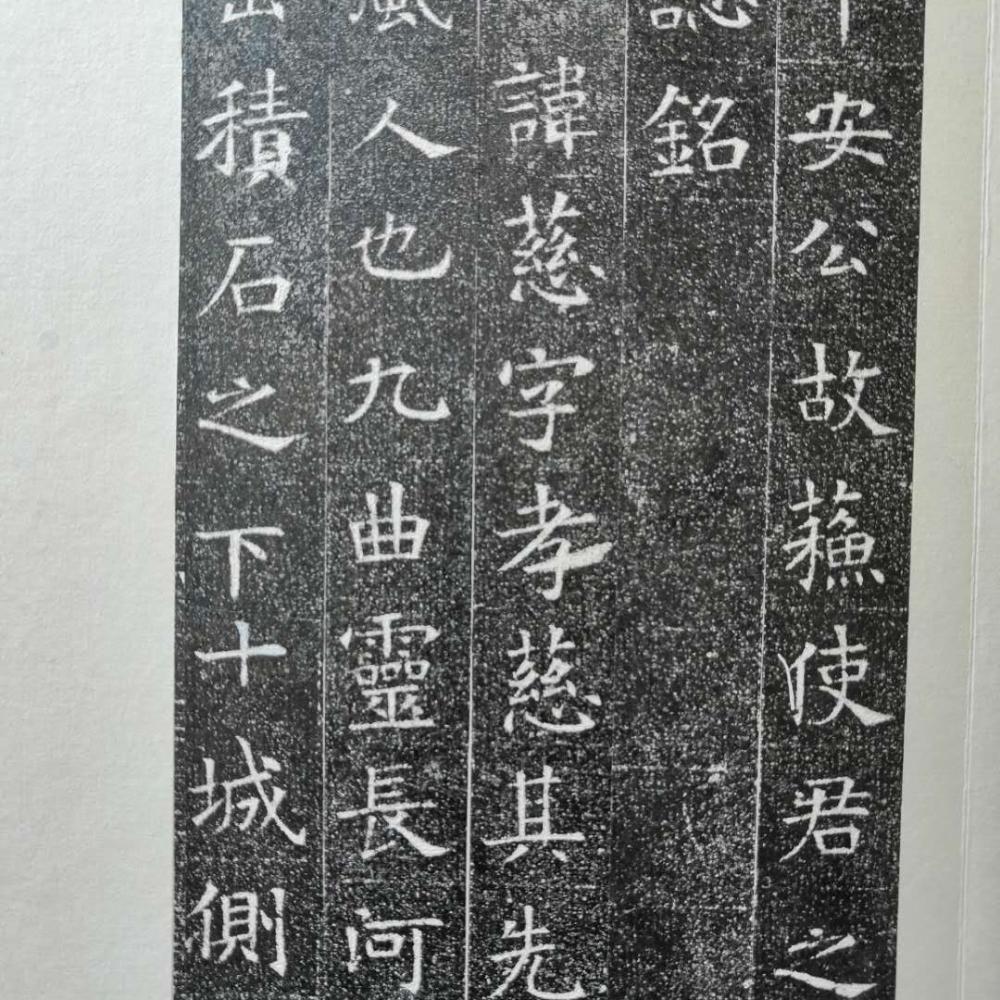 安公故蘓使君之
誌銘
諱慈字孝慈其先
風人也九曲靈長河
出積石之下十城側